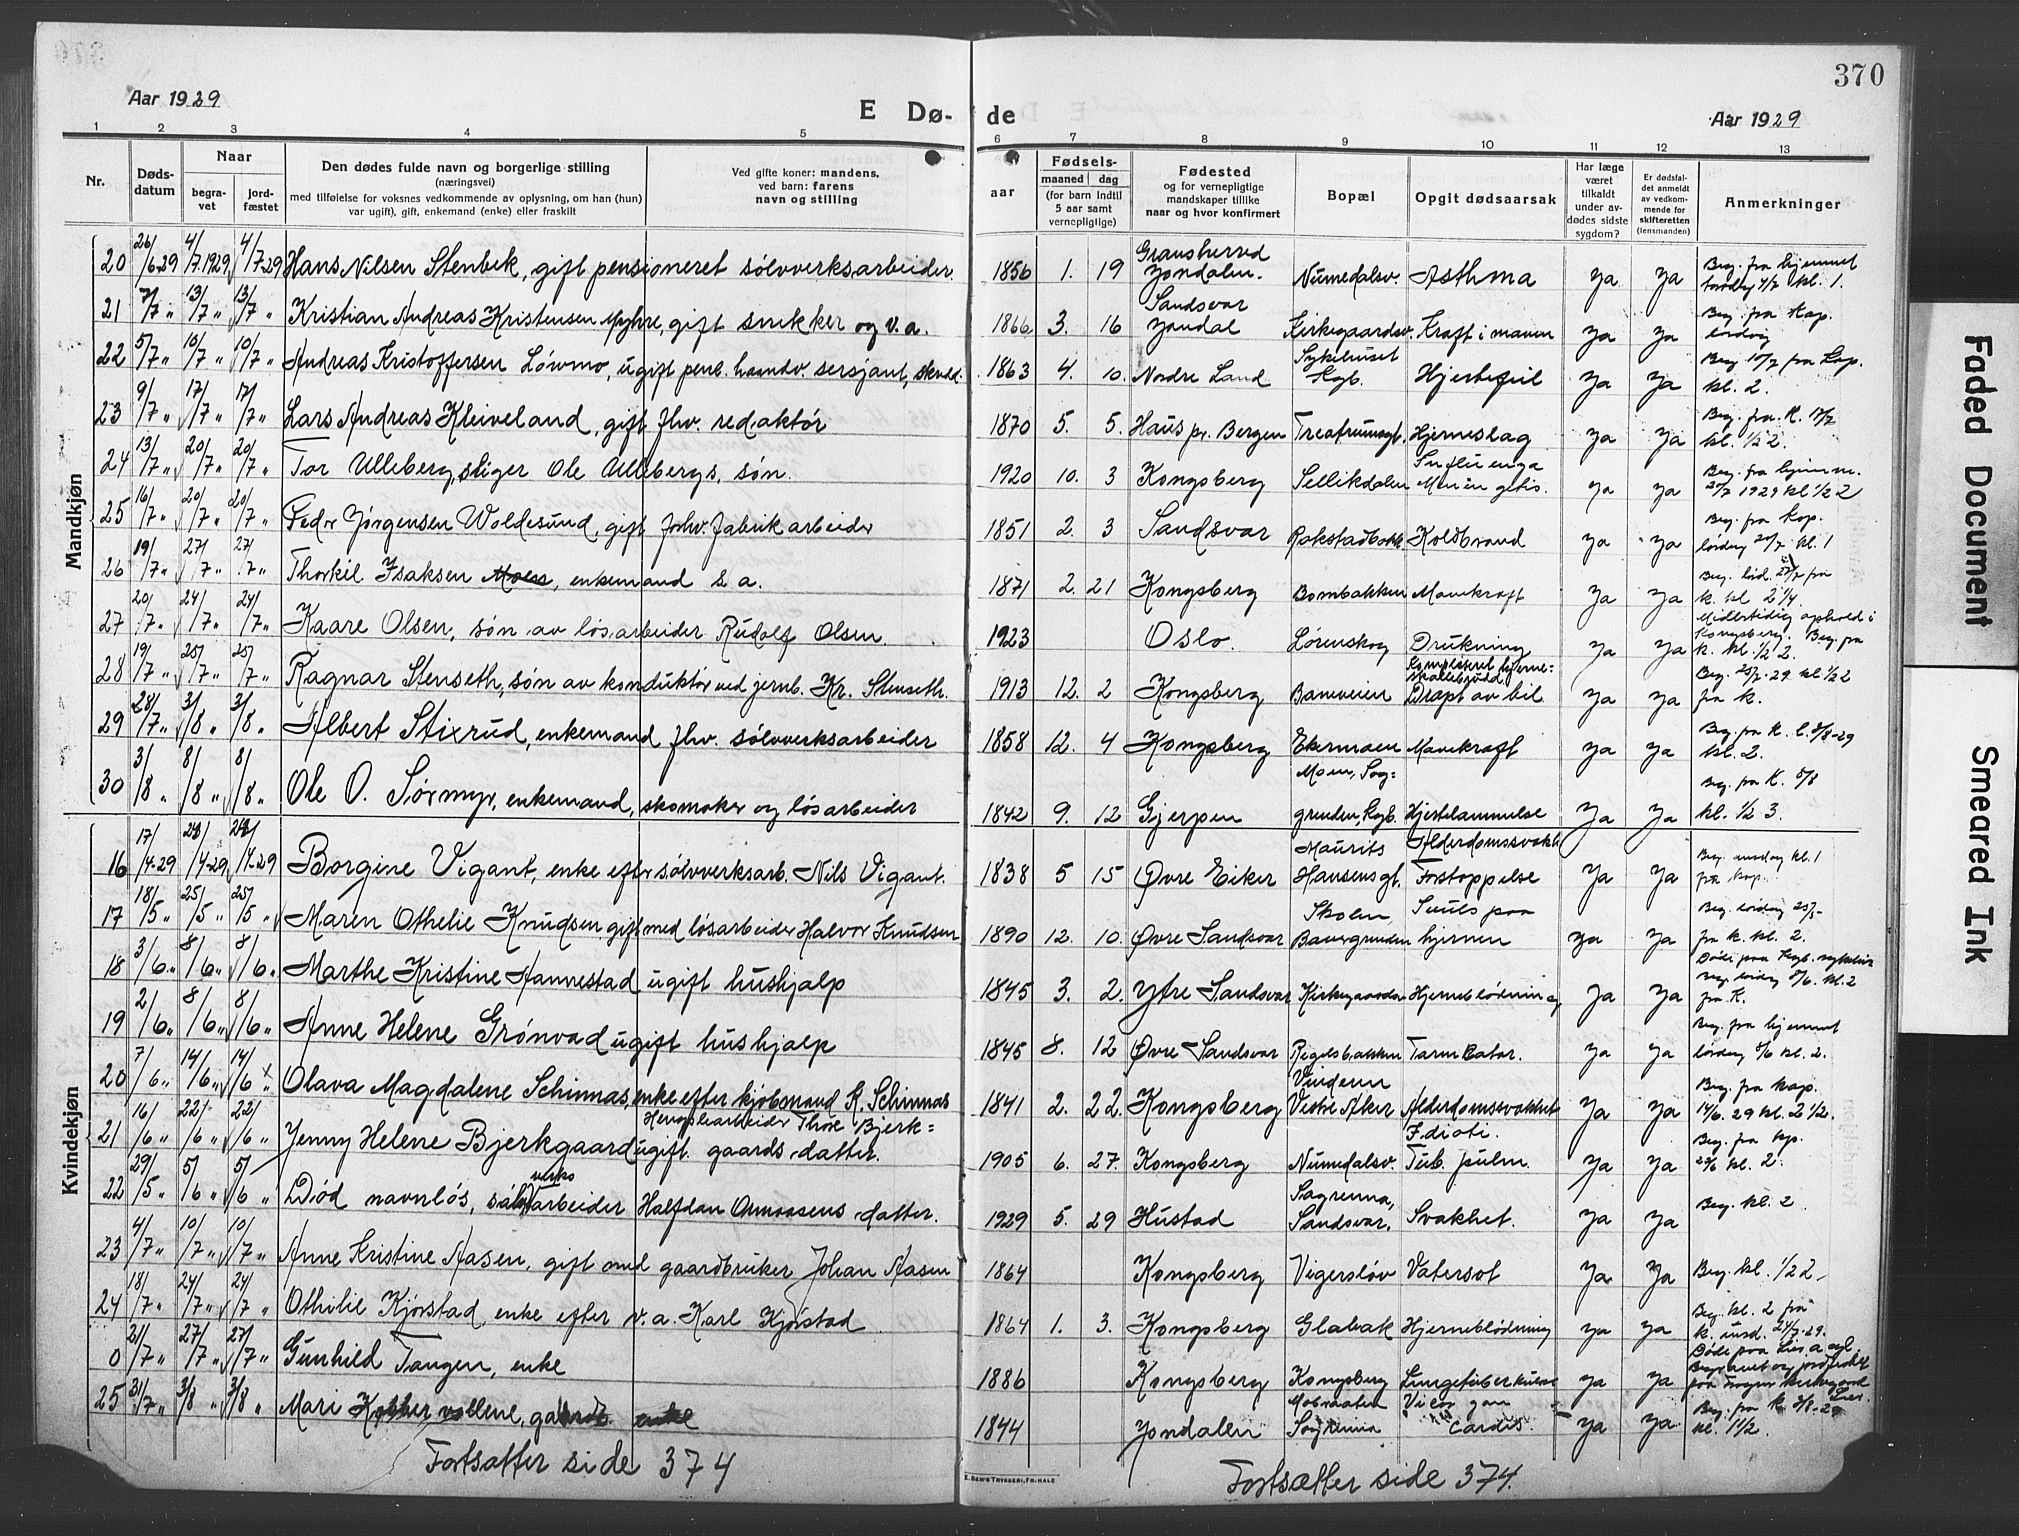 370
Aar 1929
E Dø-
de
Aar 1929
1 2 3 4 5 6 7 8 9 10 11 12 13
Nr.
Døds-
datum
Naar
begra-
vet
jord-
fæstet
Den dødes fulde navn og borgerlige stilling
(næringsvei)
med tilføielse for voksnes vedkommende av oplysning, om han (hun)
var ugift), gift, enkemand (enke) eller fraskilt
Ved gifte koner: mandens,
ved barn: farens
navn og stilling
aar
Fødsels-
maaned dag
(for barn indtil
5 aar samt
vernepligtige)
Fødested
og for vernepligtige
mandskaper tillike
naar og hvor konfirmert
Bopæl
Opgit dødsaarsak
Har læge
været
tilkaldt
under av-
dødes sidste
sygdom?
Er dødsfal-
det anmeldt
av vedkom-
mende for
skifteretten
(lensmanden)
Anmerkninger
Mandkjøn
20 26/6-29 4/7.1929 4/7-29 Hans Nilsen Stenbek, gift pensioneret sølvverksarbeider. 1856 1. 19 Gransherred Jondalen. Numedalsv. Asthma Ja Ja Beg. fra hjemmet torsdag 4/7 kl. 1.
21 7/7 " 13/7 " 13/7 " Kristian Andreas Kristensen Myhre, gift snekker og v.a. 1866 3. 16 Sandsvær Jondal Kirkegaardsv. Kræft i maven Ja Ja Beg. fra Kap. lørdag
22 5/7 " 10/7 " 10/7 " Andreas Kristoffersen Løvmo, ugift pens. haandv. sersjant, 1863 4. 10. Nordre Land Sykehuset Kgb. Hjertefeil Ja Ja Beg. 10/7 fra Kap. kl. 2.
23 9/7 " 17/7 " 17/7 " Lars Andreas Kleiveland, gift fhv. redaktør 1870 5. 5. Haus pr. Bergen Hjerneslag Ja Ja Beg. fra K. 17/7 kl. 1/2 2.
24 13/7 " 20/7 " 20/7 " Tor Ulleberg, stiger Ole Ullebergs, søn. 1920 10. 3 Kongsberg Sellikdalen Influenga Menengetis. Ja Ja Beg. fra hjemme. 20/7 1929 kl 1/2 2
25 16/7 " 20/7 " 20/7 " Peder Jørgensen Woldesund, gift forhv. fabrikarbeider 1851 2. 3 Sandsvær Koldbrand Ja Ja Beg. fra Kap. lørdag 20/7 kl. 1
26 19/7 " 27/7 " 27/7 " Thorkil Isaksen Moen, enkemand s.a. 1871 2. 21 Kongsberg Bombakken Mavekræft Ja Ja Beg. lørd. 27/7 fra k. kl 2 1/4.
27 20/7 " 24/7 " 24/7 " Kaare Olsen, søn av løsarbeider Rudolf Olsen. 1923 Oslo. Lørenskog Drukning Ja Ja Midlertidig ophold i Kongsberg. Beg. fra k. kl. 1/2 2.
28 19/7 " 25/7 " 25/7 " Ragnar Stenseth, søn av konduktør ved jernb. Kr. Stenseth. 1913 12. 2 Kongsberg Baneveien Drept av bil Ja Ja Beg. 25/7-29 kl 1/2 2 fra k.
29 28/7 " 3/8 " 3/8 " Albert Stixrud, enkemand fhv. sølvverksarbeider 1858 12. 4 Kongsberg Ekermoen Mavekræft Ja Ja Beg. fra K. 3/8-29 kl. 2.
30 3/8 " 8/8 " 8/8 " Ole O. Sørmyr, enkemand, skomaker og løsarbeider 1842 9. 12 Gjerpen Moen, Sag= grenden, Kgb. Hjertelammelse Ja Ja Beg. fra K. 8/8 kl. 1/2 3.
Kvindekjøn
16 17/4-29 24/4-29 24/4-29 Borgine Vigant, enke efter sølvverksarb. Nils Vigant. 1838 5 15 Øvre Eiker Maurits Hansens gt. Alderdomssvakh. Forstoppelse Ja Ja Beg. onsdag kl. 1 fra kap.
17 18/5 " 25/5 " 25/5 " Maren Othelie Knudsen, gift med løsarbeider Halvor Knudsen 1890 12. 10. Øvre Sandsvær Skolen, Svuls paa hjernen Ja Ja Beg. lørdag 25/5- fra k. kl. 2.
18 3/6 " 8/6 " 8/6 " Marthe Kristine Hannestad ugift hushjælp 1845 3. 2. Ytre Sandsvær Hjerneblødning Ja Ja Døde paa Kgb. sykehus Beg. lørdag 8/6. kl. 2 fra K.
19 2/6 " 8/6 " 8/6 " Anne Helene Grønvad ugift hushjælp 1845 8. 12 Øvre Sandsvær Tarmcatar. Ja Ja Beg. fra hjemmet lørdag 8/6 kl. 2.
20 7/6 " 14/6 " 14/6 " Olava Magdalene Schinnas, enke efter kjøbmand K. Schinnas 1841 2. 22. Kongsberg Vinderen Vestre Aker Alderdomssvakhet Ja Ja Beg. fra kap. 14/6. 29 kl. 2 1/2.
21 16/6 " 22/6 " 22/6 " Jenny Helene Bjerkgaard ugift Thore Bjerk= gaards datter. 1905 6. 27. Kongsberg Numedalsv. Idioti. Tub. pulm. Ja Ja Beg. fra kp. kl. 2.
22 29/5 " 5/6 " 5/6 " Død navnløs, sølvverksarbeider Halfdan datter. 1929 5. 29 Hustad Sagrenna, Sandsvær. Svakhet. Ja Ja Beg. kl. 2
23 4/7 " 10/7 " 10/7 " Anne Kristine Aasen, gift med gaardbruker Johan Aasen 1864 Kongsberg Vigersløv Vatersot Ja Ja Beg. kl. 1/2 2
24 18/7 " 24/7 " 24/7 " Othilie Kjørstad enke efter v.a. Karl Kjørstad 1864 1. 3. Kongsberg Glabak Hjerneblødning Ja Ja Beg. kl. 2 fra k. onsd. 24/7-29.
0 21/7 " 27/7 " 27/7 " Gunhild Tangen, enke 1886 Kongsberg Kongsberg Lungetuberkulose Ja Ja Døde paa Lier Begravet og jordfæstet paa Frogner kirkegaard Lier.
25 31/7 " 3/8 " 3/8 " Mari enke 1844 Jondalen Cardis. Ja Ja Beg. fra k 3/8-29 kl. 1 1/2.
Fortsætter side 374
Fortsætter side 374.
Faded Document
Smeared Ink